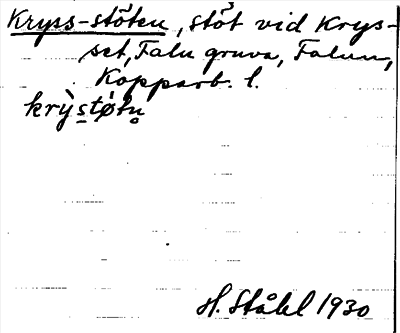 Kryss-stöten, stöt vid Krys-
set, Falu gruva, Falun,
Kopparb. l.
krỳstǿtn̥
H. Ståhl 1930